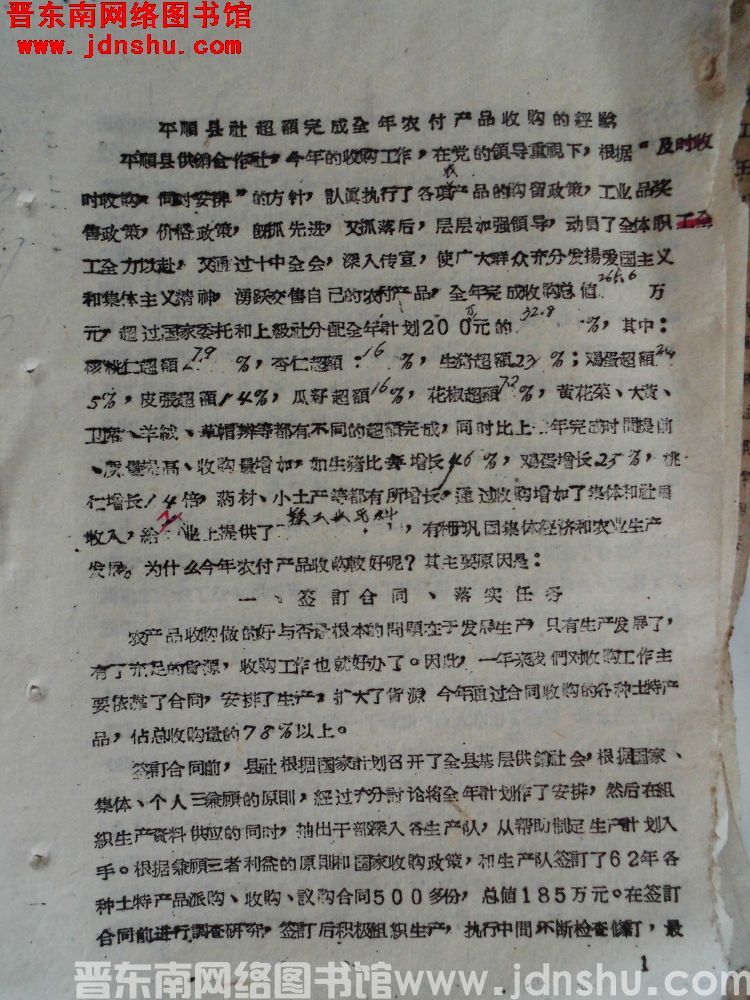 晋东南网络图书馆
www.jdnshu.com
平顺县社超额完成全年农付产品收购的经验
平顺县供销合作社，今年的收购工作，在党的领导重视下，根据“及时收
时收购 同时安排”的方针，认真执行了各项农产品的购留政策，工业品奖
售政策，价格政策，既抓先进，又抓落后，层层加强领导，动员了全体职工全
工全力以赴，又通过十中全会，深入传宣，使广大群众充分发揚爱国主义
和集体主义精神，湧跃交售自己的农付产品，全年完成收购总值265.6万
元，超过国家委托和上級社分配全年计划200万元的32.8％，其中：
核桃仁超額79％，杏仁超額16％，生猪超額23％；鸡蛋超額24
5％，皮張超額14％，瓜籽超額16％，花椒超額72％，黄花菜、大黄、
卫席、羊絨、草帽辮等都有不同的超額完成，同时比上年完成时間提前
、质量提高、收购量增加，如生猪比每年增长46％，鸡蛋增长25％，桃
仁增长14倍，葯材、小土产等都有所增长，通过收购增加了集体和社員
收入，給工业上提供了 原料，有利巩固集体经济和农业生产
发展。为什么今年农付产品收购較好呢？其主要原因是：
一、签訂合同、落实任务
农产品收购做的好与否最根本的問題在于发展生产，只有生产发展了，
有了充足的货源，收购工作也就好办了。因此，一年来我們对收购工作主
要依靠了合同，安排了生产，扩大了货源，今年通过合同收购的各种土特产
品，佔总收购量的78％以上。
签訂合同前，县社根据国家計划召开了全县基层供銷社会，根据国家、
集体、个人三兼顾的原則，经过充分討论将全年計划作了安排，然后在組
织生产資料供应的同时，抽出干部深入各生产队，从帮助制定生产計划入
手。根据兼顾三者利益的原則和国家收购政策，和生产队签訂了62年各
种土特产品派购、收购、议购合同500多份，总值185万元。在签訂
合同前进行調查研究，签訂后积极組织生产，执行中間不断检查修訂，最
1
晋东南网络图书馆www.jdnshu.com